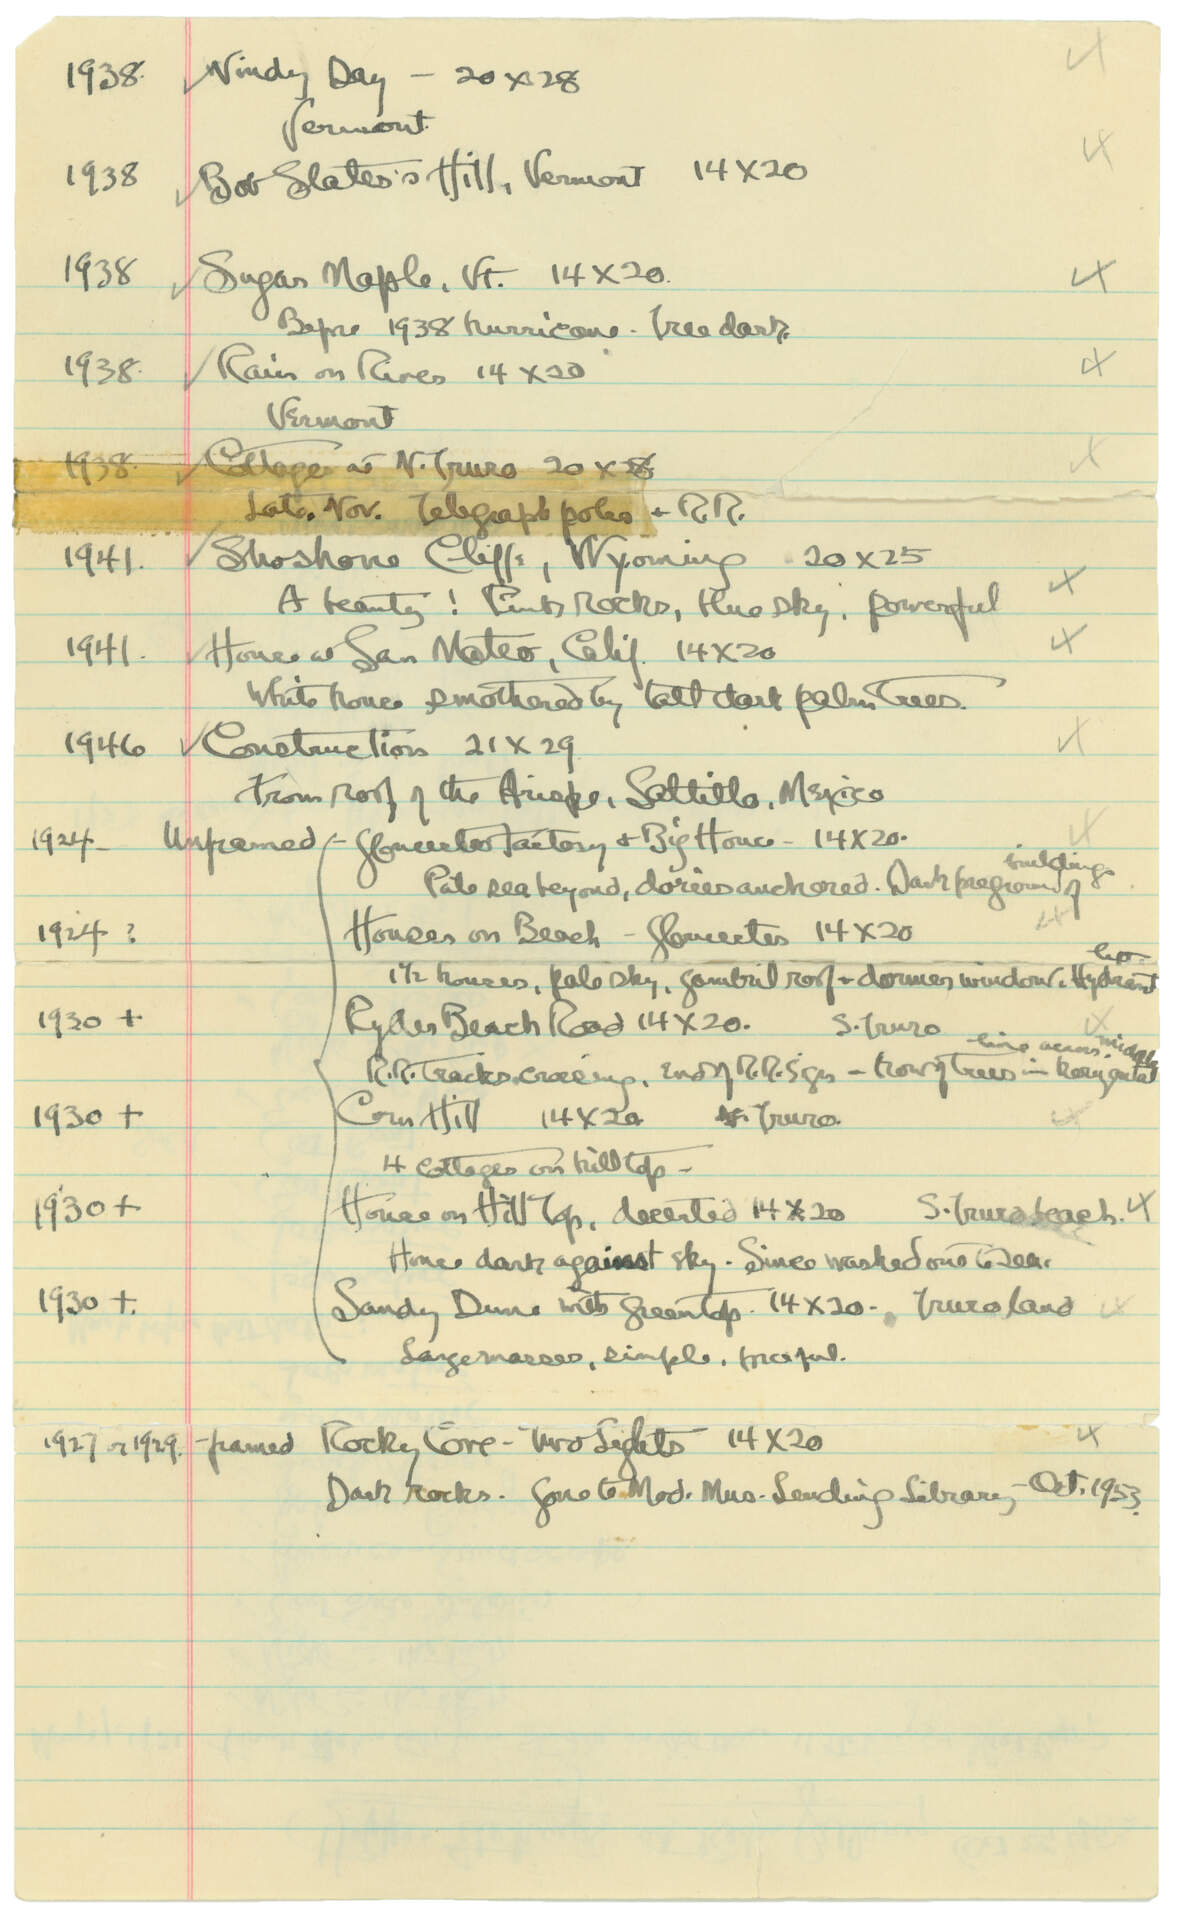 1938. Windy Day - 20 x 28
Vermont.
1938 Bob Slates's Hill, Vermont 14 X 20
1938 Sugar Maple, Vt. 14 X 20.
Before 1938 hurricane. Tree dark.
1938. Rain on River 14 x 20
Vermont
1938. Cottages at N. Truro 20 x 28
Late. Nov. Telegraph poles + R.R.
1941. Shoshone Cliffs, Wyoming 20 x 25
A beauty! Pink rocks, blue sky, powerful
1941. House at San Mateo, Calif. 14 X 20
White house smothered by tall dark palm trees.
1946 Construction 21 X 29
From roof of the Arizpe, Saltillo, Mexico
1924- Unframed - Gloucester Factory + Big House - 14 X 20.
Pale sea beyond, dories anchored. Dark foreground of buildings
1924 ? Houses on Beach - Gloucester 14 X 20
1 1/2 houses, pale sky, gambril roof + dormer window. Hydrant
1930 + Ryder Beach Road 14 X 20. S. Truro
R.R. Tracks crossing, end of R.R. Sign - row of trees in horizontal line across middle
1930 + Corn Hill 14 X 20 Truro.
4 cottages on hill top -
1930 + House on Hill Top, deserted 14 X 20 S. Truro beach.
House dark against sky. Since washed out to sea.
1930 +. Sandy Dune with green top. 14 X 20 - Truro land
Large masses, simple, forceful.
1927 or 1929. framed Rocky Cove - Two Lights 14 X 20
Dark rocks. Gone to Mod. Mus. Lending Library - Oct. 1953.